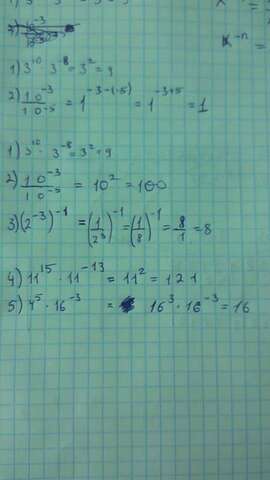 1) 3¹⁰ 3⁻⁸ = 3² = 9
2) 10⁻³/10⁻⁵ = 1⁻³⁻⁽⁻⁵⁾ = 1⁻³⁺⁵ = 1
1) 3¹⁰ · 3⁻⁸ = 3² = 9
2) 10⁻³/10⁻⁵ = 10² = 100
3) (2⁻³)⁻¹ = (1/2³)⁻¹ = (1/8)⁻¹ = 8/1 = 8
4) 11¹⁵ · 11⁻¹³ = 11² = 121
5) 4⁵ · 16⁻³ = 16³ · 16⁻³ = 16